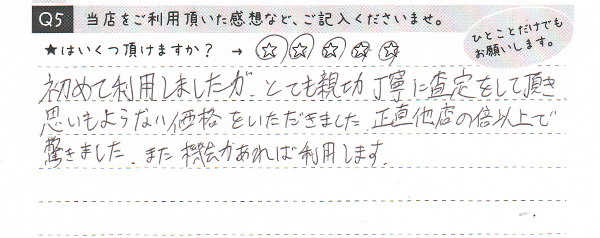 Q5 当店をご利用頂いた感想など、ご記入くださいませ。
★はいくつ頂けますか？ → ☆☆☆☆☆
ひとことだけでも
お願いします。
初めて利用しましたが、とても親切丁寧に査定をして頂き
思いもよらない価格をいただきました。正直他店の倍以上で
驚きました。また機会があれば利用します。